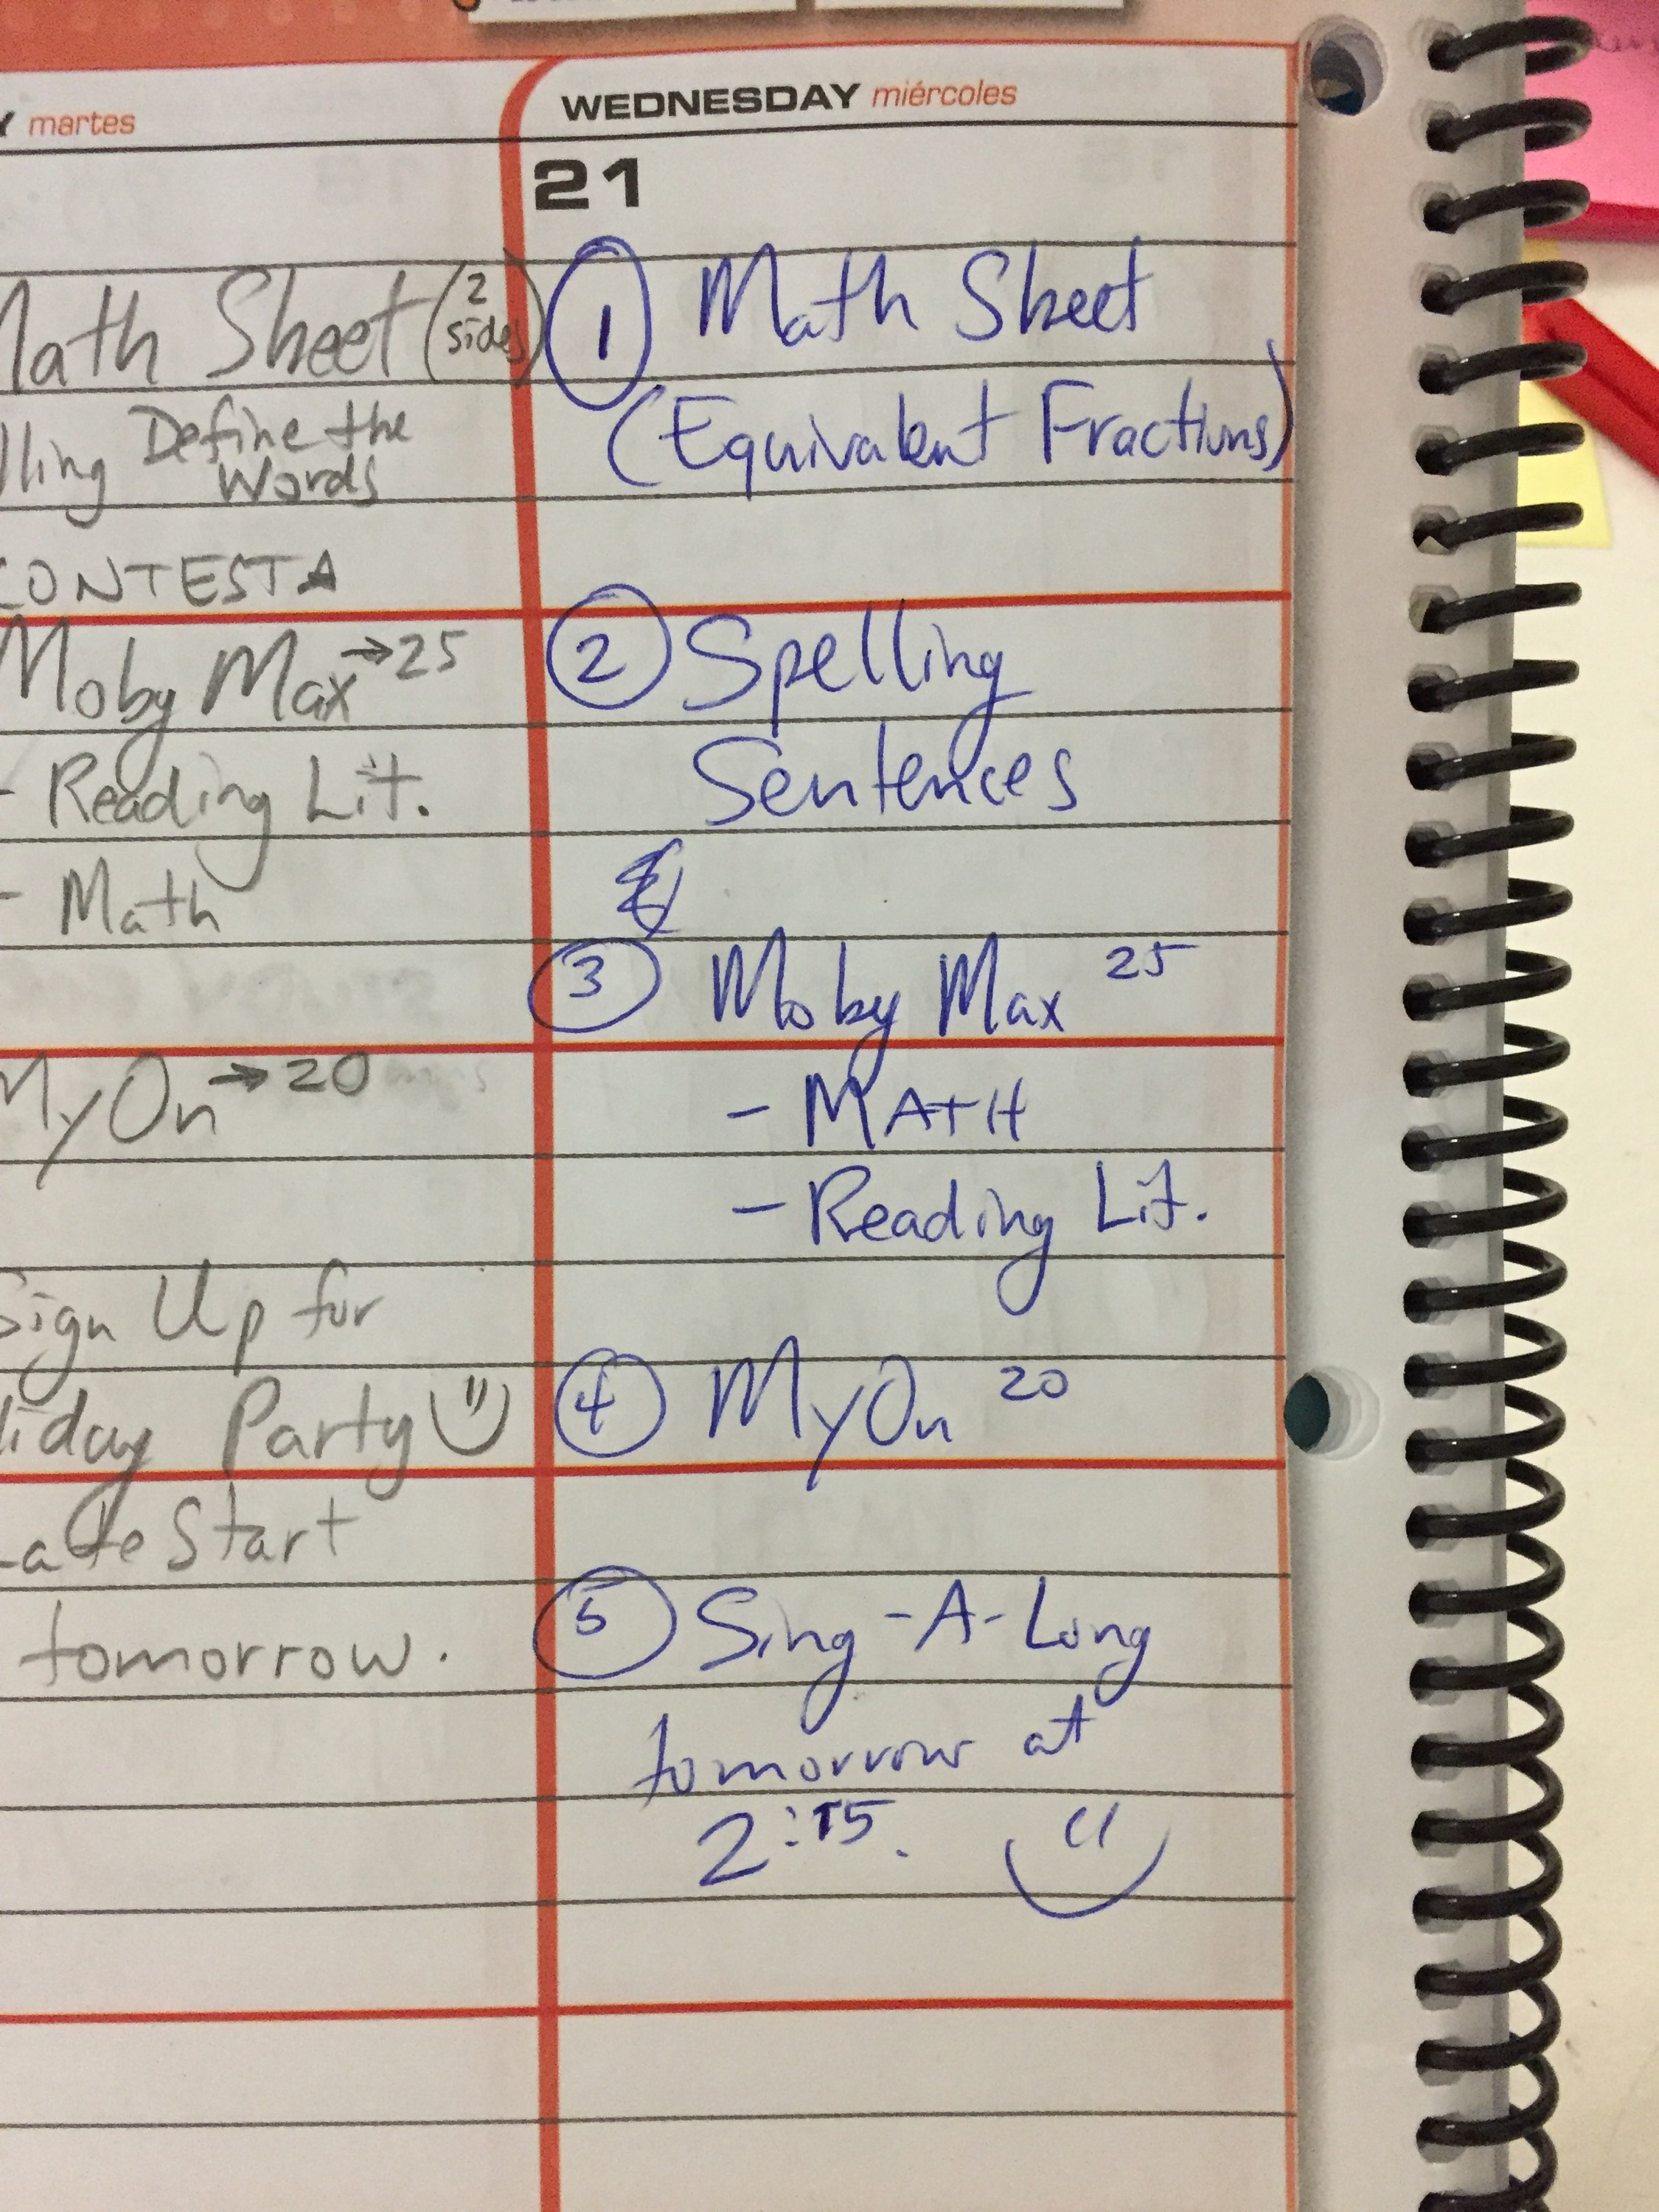 martes
Math Sheet (2 sides)
Define the
Words
CONTESTA
Moby Max → 25
- Reading Lit.
- Math
MyOn → 20
Sign Up for
Party
Late Start
tomorrow.
WEDNESDAY miércoles
21
1 Math Sheet
(Equivalent Fractions)
2 Spelling
Sentences
3 Moby Max 25
- MATH
- Reading Lit.
4 MyOn 20
5 Sing-A-Long
tomorrow at
2:15.